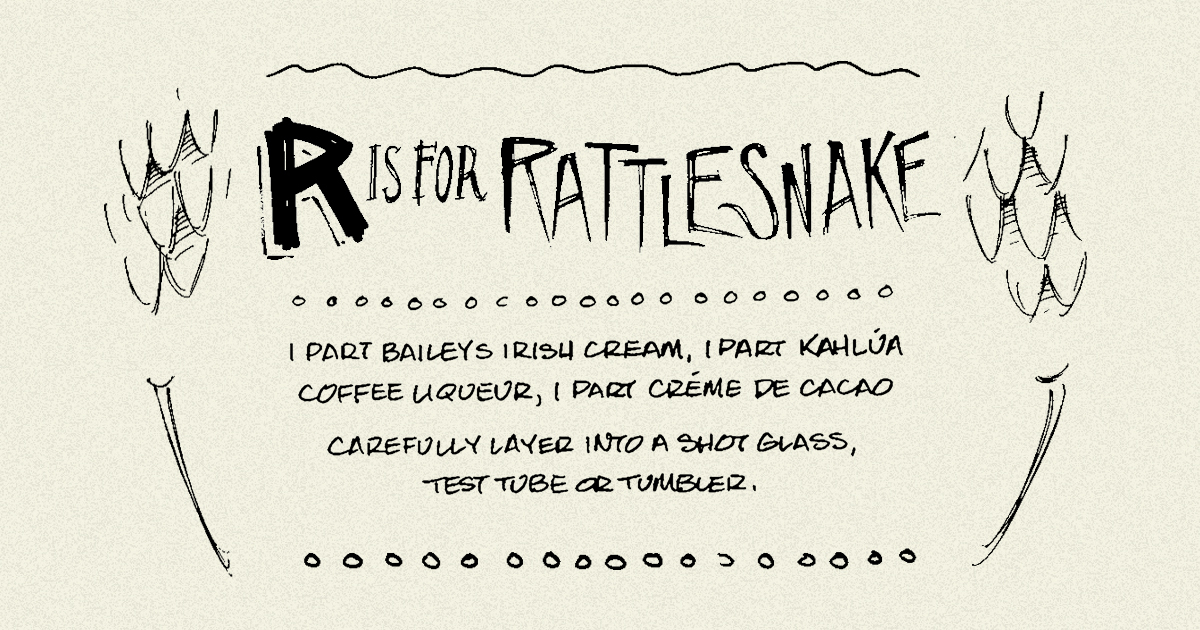 R IS FOR RATTLESNAKE
1 PART BAILEYS IRISH CREAM, 1 PART KAHLÚA
COFFEE LIQUEUR, 1 PART CRÉME DE CACAO
CAREFULLY LAYER INTO A SHOT GLASS,
TEST TUBE OR TUMBLER.